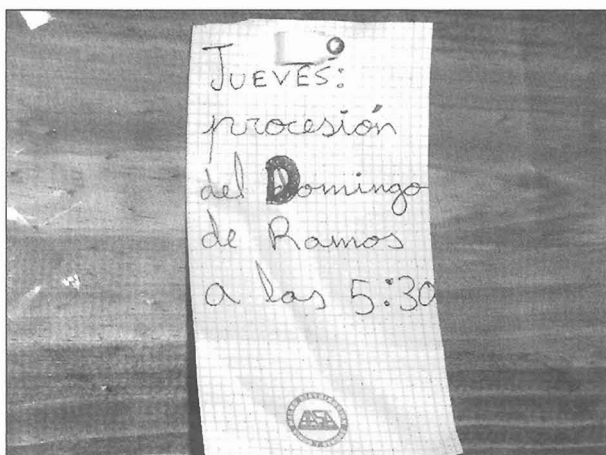 JUEVES:
procesión
del Domingo
de Ramos
a las 5:30